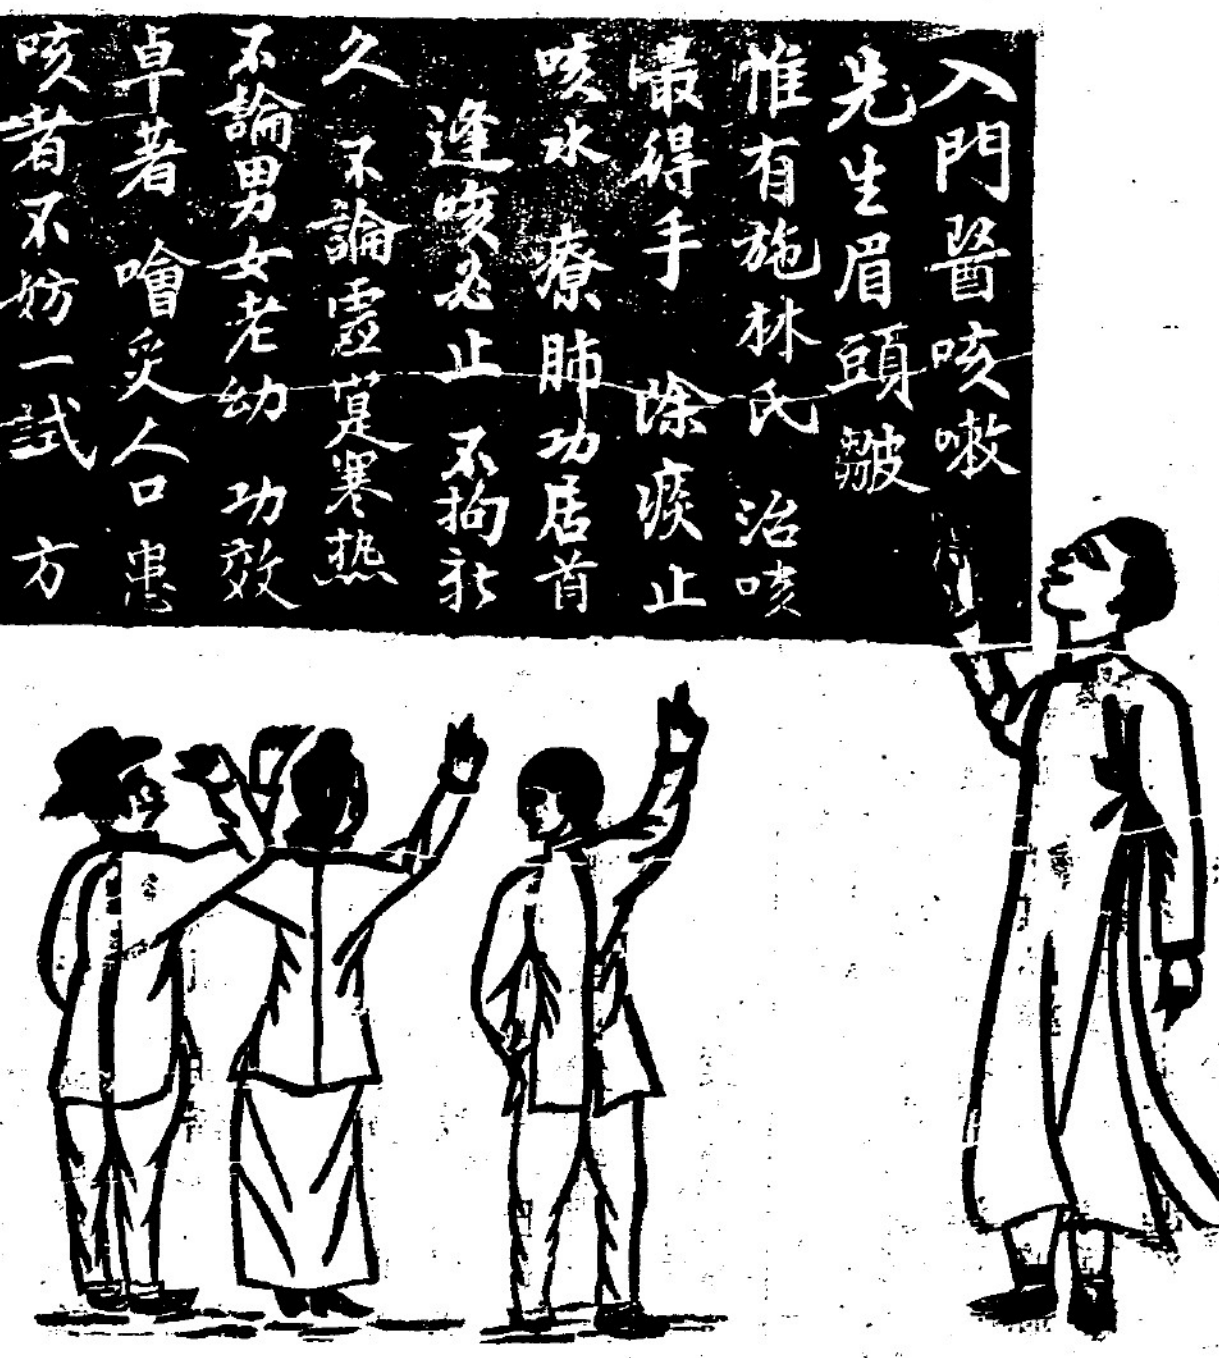 入門醫咳嗽
先生眉頭皺
惟有施林氏 治咳
最得手 除痰止
咳水 療肺功居首
逢咳必止 不拘新
久 不論虛寔寒熱
不論男女老幼 功效
卓著 噲炙人口 患
咳者不妨一試 方